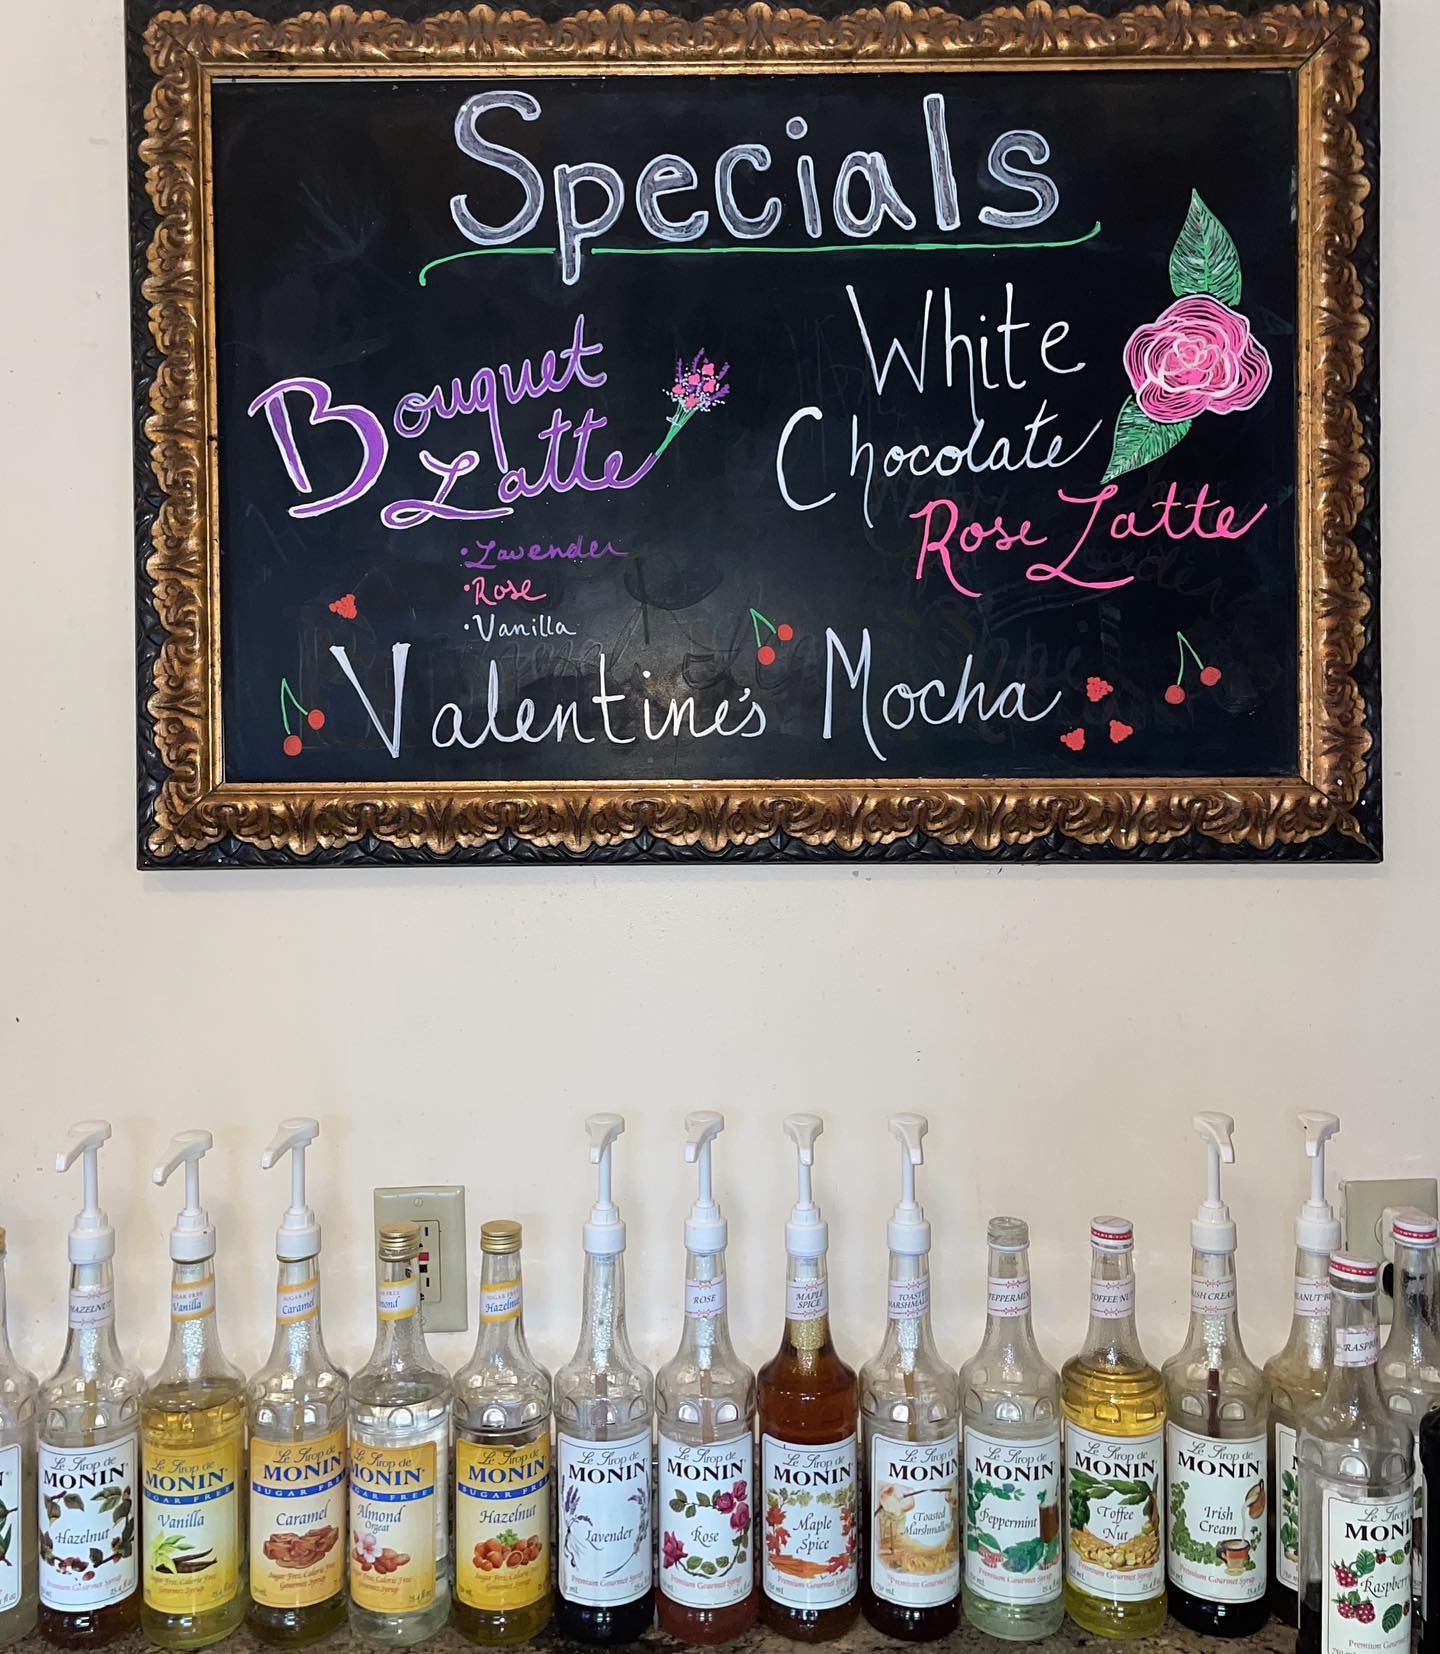 Specials
Bouquet
Latte
•Lavender
•Rose
•Vanilla
White
Chocolate
Rose Latte
Valentine's Mocha
HAZELNUT
SUGAR FREE
Vanilla
SUGAR FREE
Caramel
Hazelnut
ROSE
MAPLE
SPICE
TOFFEE NUT
Le Sirop de
MONIN
Hazelnut
Premium Gourmet Syrup
Le Sirop de
MONIN
SUGAR FREE
Vanilla
Le Sirop de
MONIN
SUGAR FREE
Caramel
Sugar Free/Calorie Free
Gourmet Syrup
Le Sirop de
MONIN
SUGAR FREE
Almond
Orgeat
Le Sirop de
MONIN
SUGAR FREE
Hazelnut
Le Sirop de
MONIN
Lavender
Premium Gourmet Syrup
Le Sirop de
MONIN
Rose
Premium Gourmet Syrup
Le Sirop de
MONIN
Maple
Spice
Premium Gourmet Syrup
Le Sirop de
MONIN
Toasted
Marshmallow
Premium Gourmet Syrup
Le Sirop de
MONIN
Peppermint
Premium Gourmet Syrup
Le Sirop de
MONIN
Toffee
Nut
Premium Gourmet Syrup
Le Sirop de
MONIN
Irish
Cream
Premium Gourmet Syrup
Le Sirop de
MONI
Raspberry
Premium Gourmet